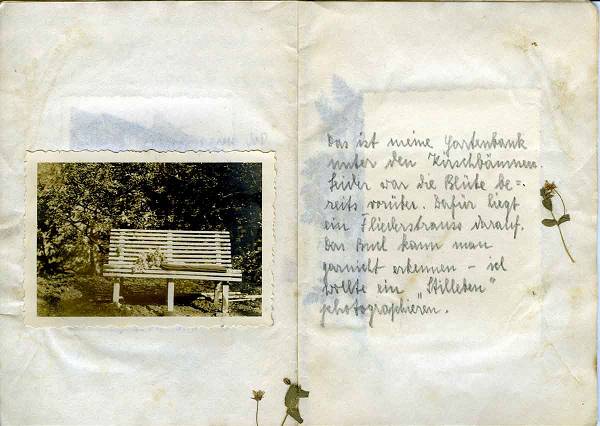 Das ist meine Gartenbank
unter den Kirschbäumen.
Leider war die Blüte be-
reits vorüber. Dafür liegt
ein Fliederstrauss darauf.
Das Buch kann man
garnicht erkennen – ich
wollte ein "Stilleben"
photographieren.